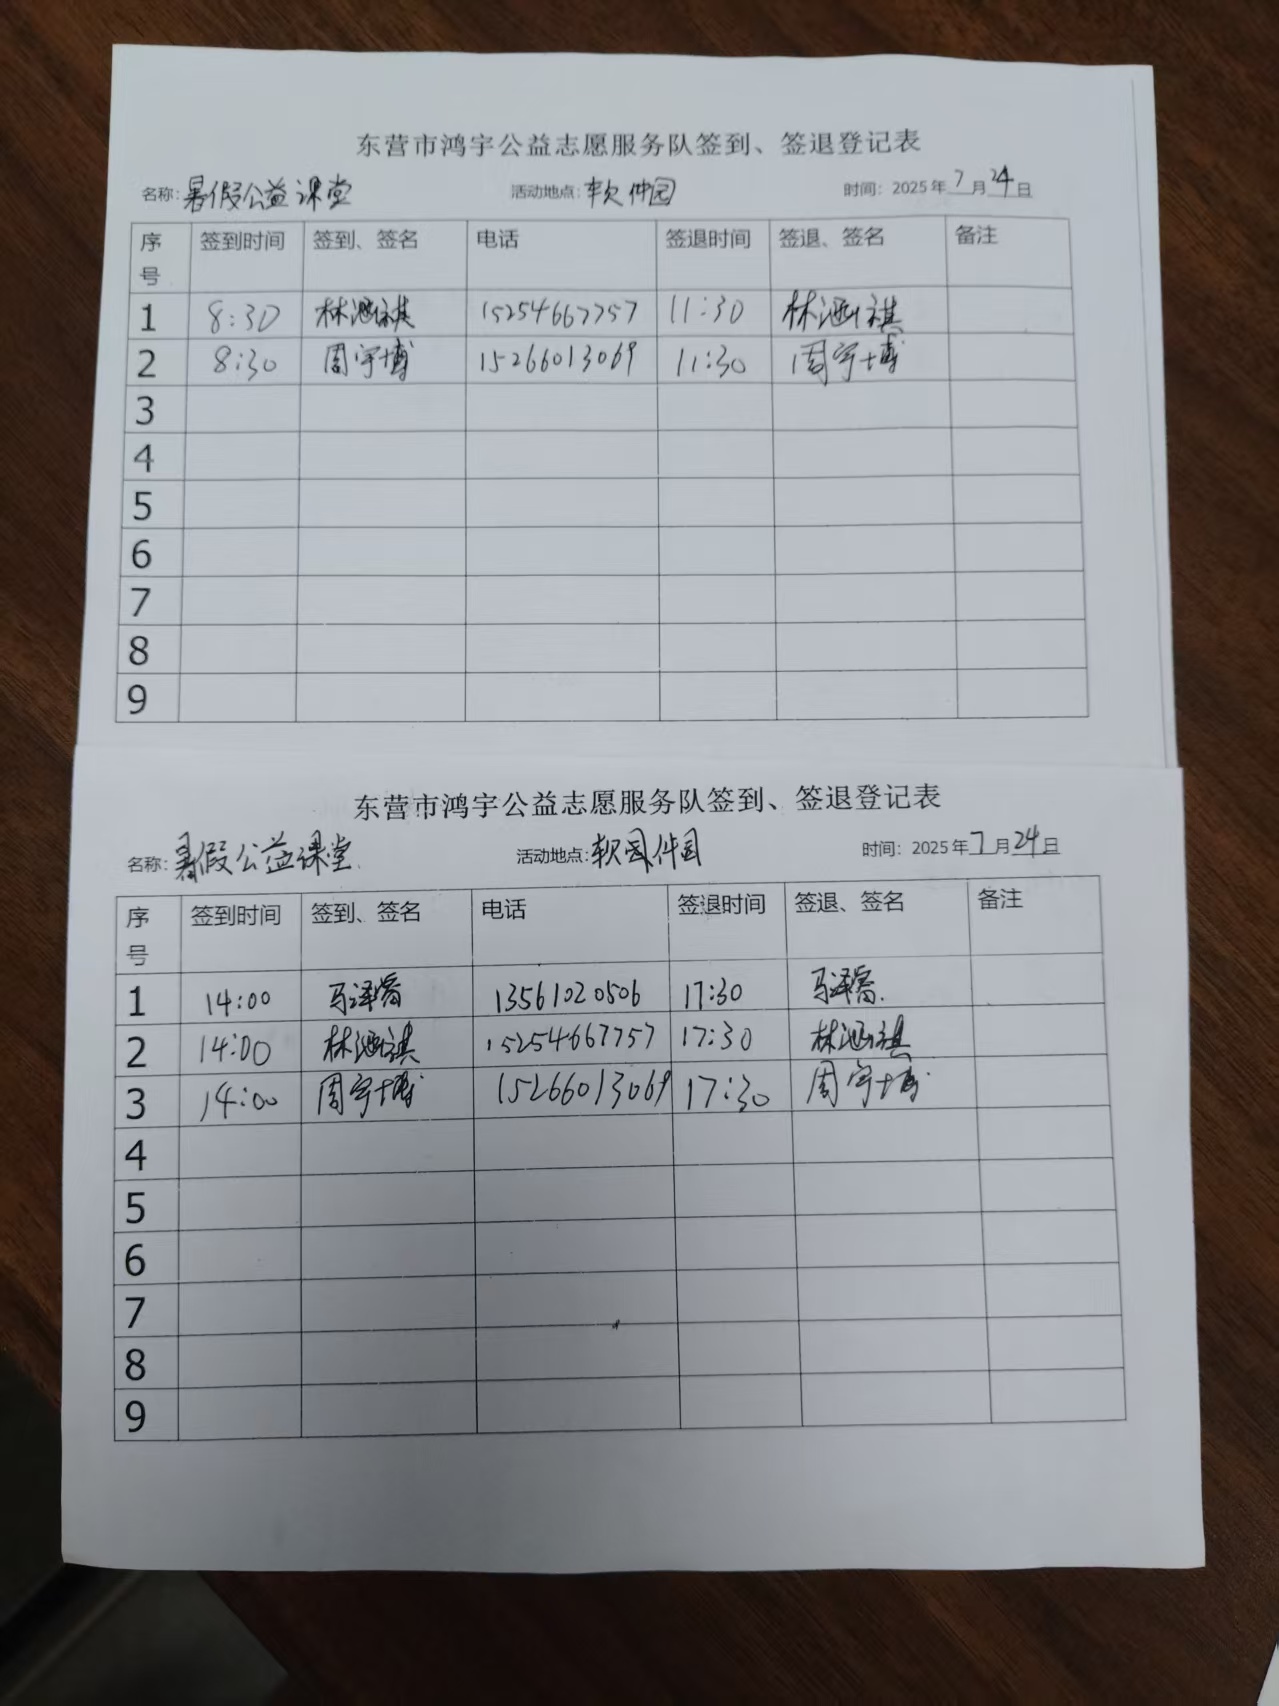 东营市鸿宇公益志愿服务队签到、签退登记表
名称：暑假公益课堂 活动地点：软件园 时间：2025年7月24日
序号 签到时间 签到、签名 电话 签退时间 签退、签名 备注
1 8:30 林涵祺 15254667757 11:30 林涵祺
2 8:30 周宇博 15266013069 11:30 周宇博
3
4
5
6
7
8
9
东营市鸿宇公益志愿服务队签到、签退登记表
名称：暑假公益课堂 活动地点：软件园 时间：2025年7月24日
序号 签到时间 签到、签名 电话 签退时间 签退、签名 备注
1 14:00 马泽睿 13561020506 17:30 马泽睿
2 14:00 林涵祺 15254667757 17:30 林涵祺
3 14:00 周宇博 15266013069 17:30 周宇博
4
5
6
7
8
9